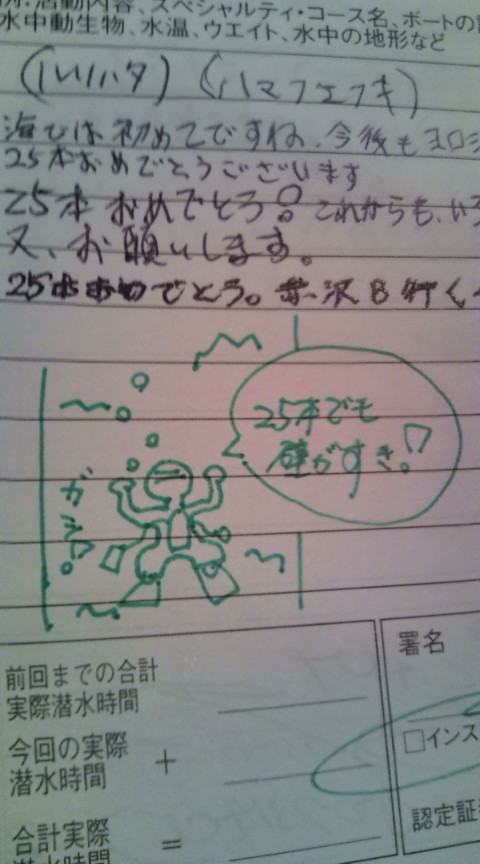 所:活動内容、スペシャルティ・コース名、ボートの
水中動生物、水温、ウエイト、水中の地形など
(ハマフエフキ)
海では初めてですね、今後もヨロシ
25本おめでとうございます
25本おめでとう! これからも、いろ
又、お願いします。
25本おめでとう。赤沢も行く
25本でも
壁がすき!
前回までの合計
実際潜水時間
署名
今回の実際
潜水時間 +
□インス
合計実際
潜水時間 =
認定証